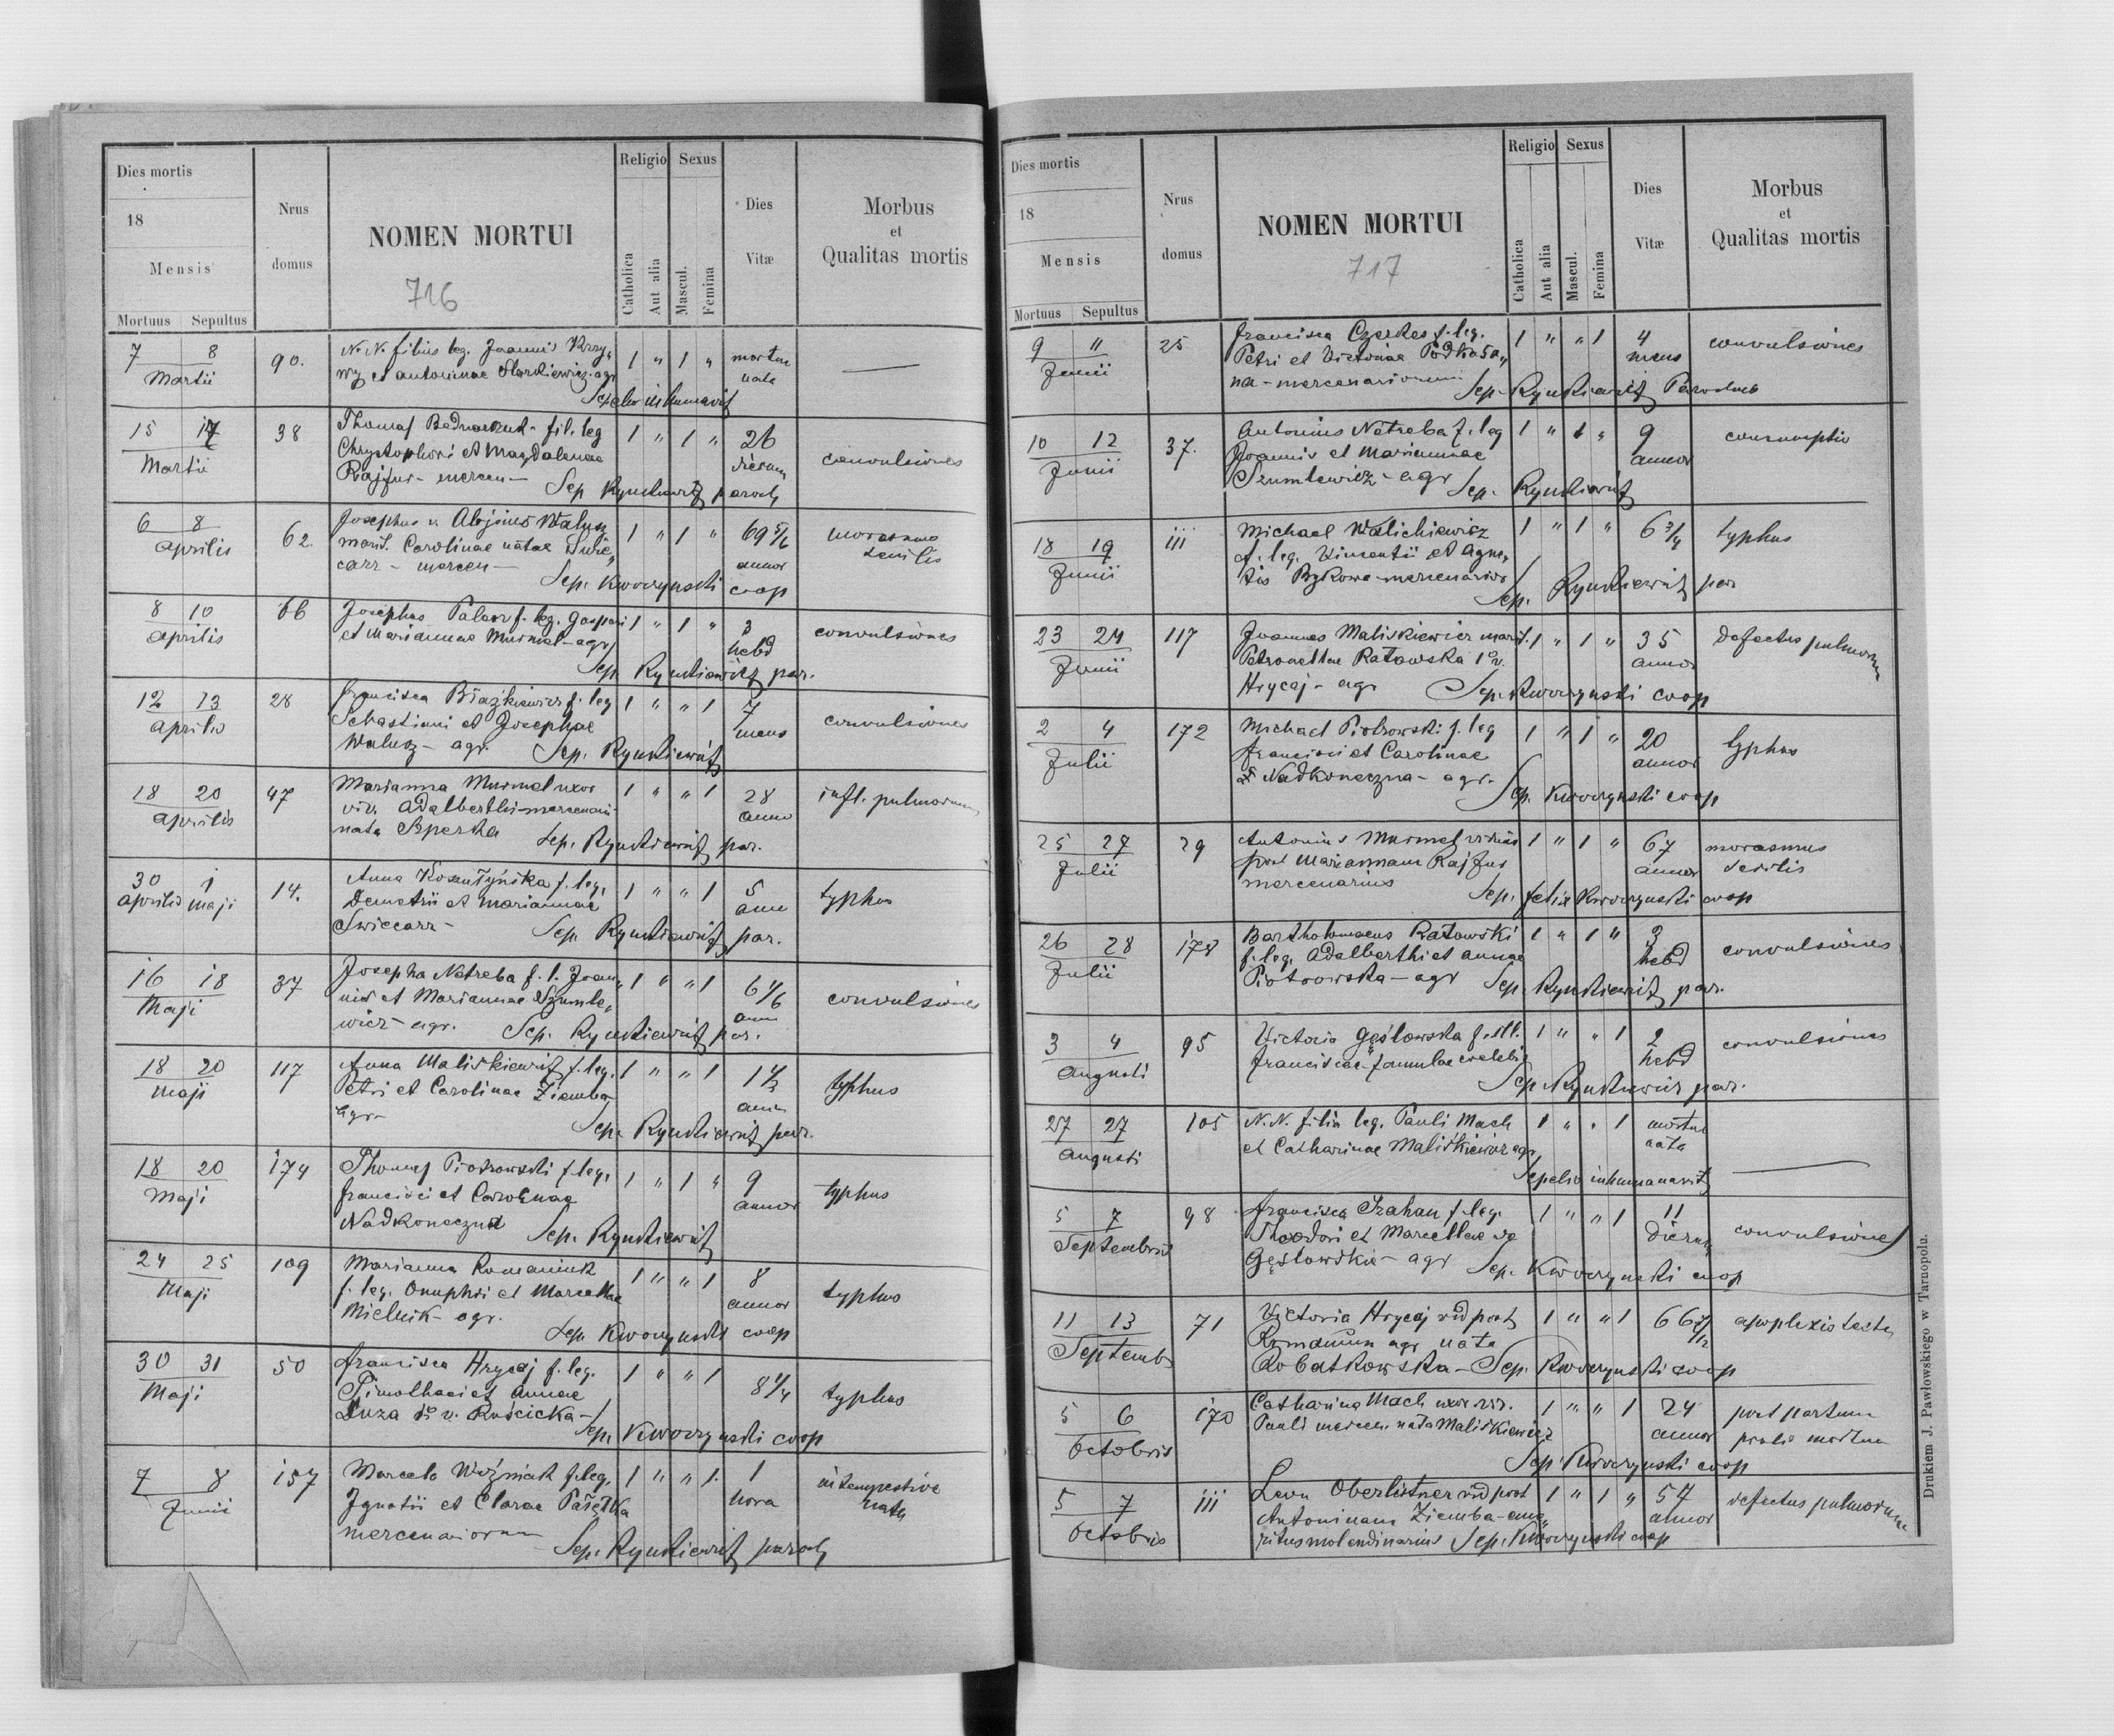 Dies mortis
18
Mensis
Mortuus Sepultus
Nrus domus
NOMEN MORTUI
716
Religio
Catholica
Aut alia
Sexus
Mascul.
Femina
Dies Vitæ
Morbus et Qualitas mortis
7 8 90. N. N. filius leg. Joannis Krzy„ 1 " 1 " mortuu —
Martii wy et Antoninae Starkiewicz agr nata
15 17 38 Thomas Bednarczuk fil. leg 1 " 1 " 26 convulsiones
Martii Chrystophori et Magdalenae dierum
Rajfur - mercen - Sep Rynkiewicz paroch
6 8 62 Josephus v. Alojsius Walusz 1 " 1 " 69 5/6 marasmus
Aprilis marit. Carolinae natae Swie„ annor senilis
carz - mercen - Sep. Kworzynski coop
8 10 66 Josephus Palacz f. leg. Gaspari 1 " 1 " 3 convulsiones
Aprilis et Mariannae Murmel - agr hebd
Sep. Rynkiewicz par.
12 13 28 Francisca Błażkiewicz f. leg 1 " " 1 7 convulsiones
Aprilis Sebastiani et Josephae mens
Walusz - agr. Sep. Rynkiewicz
18 20 47 Marianna Murmel uxor 1 " " 1 28 infl. pulmorum
Aprilis viv. Adalberthi - mercenarii anno
nata Sep. Rynkiewicz par.
30 1 14. Anna f. leg. 1 " " 1 5 typhus
Aprilis Maji Demetrii et Mariannae ann
Swiecarz - Sep. Rynkiewicz par.
16 18 37 Josepha Netreba f. l. Joan„ 1 " " 1 6 convulsiones
Maji nis et Mariannae Szumle„ ann
wicz - agr. Sep. Rynkiewicz par.
18 20 117 Anna Maliskiewicz f. leg. 1 " " 1 1 1/2 typhus
Maji Petri et Carolinae Ziemba ann
agr - Sep. Rynkiewicz par.
18 20 174 Thomas Piotrowski f leg. 1 " 1 " 9 typhus
Maji Francisci et Carolinae annor
Nadkoneczna Sep. Rynkiewicz
24 25 109 Marianna Romaniuk 1 " " 1 8 typhus
Maji f. leg. Onuphri et Marcellae annor
Mielnik - agr. Sep. Kworzynski coop
30 31 50 Francisca Hrycaj f. leg. 1 " " 1 8 1/4 typhus
Maji Timothaei et Annae
Luza v. Ruscicka - Sep. Kworzynski coop
7 8 157 Marcela Woźniak f. leg. 1 " " 1. 1 intempestive
Junii Ignatii et Clarae hora nata
mercenariorum Sep. Rynkiewicz paroch
Dies mortis
18
Mensis
Mortuus Sepultus
Nrus domus
NOMEN MORTUI
717
Religio
Catholica
Aut alia
Sexus
Mascul.
Femina
Dies Vitæ
Morbus et Qualitas mortis
9 11 25 Francisca Czerkes f. leg. 1 " " 1 4 convulsiones
Junii Petri et Victoriae mens
na - mercenariorum Sep. Rynkiewicz Parochus
10 12 37. Antonius Netreba f. leg 1 " 1 " 9 consumptio
Junii Joannis et Mariannae annor
Szumlewicz - agr Sep. Rynkiewicz
18 19 111 Michael Walichiewicz 1 " 1 " 6 3/4 typhus
Junii f. leg. Vincentii et Agne„
tis Bykowa - mercenarior Sep. Rynkiewicz par
23 24 117 Joannes Maliskiewicz marit. 1 " 1 " 35 defectus pulmorum
Junii Petronellae Ratowska 1o v. annor
Hrycaj - agr Sep. Kworzynski coop
2 4 172 Michael Piotrowski f. leg 1 " 1 " 20 typhus
Julii Francisci et Carolinae annor
Nadkoneczna - agr. Sep. Kworzynski coop
25 27 29 Antonius Murmel viduus 1 " 1 " 67 marasmus
Julii post Mariannam Rajfur annor senilis
mercenarius Sep. Felix Kworzynski coop
26 28 178 Bartholomaeus Ratowski 1 " 1 " 3 convulsiones
Julii f. leg. Adalberthi et Annae hebd
Piotrowska - agr Sep. Rynkiewicz par.
3 4 95 Victoria Gęslowska f. ill. 1 " " 1 2 convulsiones
Augusti Franciscae - famulae coelebis hebd
Sep. Rynkiewicz par.
27 27 105 N. N. filia leg. Pauli Mach 1 " " 1 mortua —
Augusti et Catharinae Maliskiewicz agr nata
5 7 98 Francisca Trahan f. leg. 1 " " 1 11 convulsiones
Septembris Theodori et Marcellae de dierum
Gęslowskie - agr Sep. Kworzynski coop
11 13 71 Victoria Hrycaj vid post 1 " " 1 66 7/12 apoplexio tacta
Septembr Romanum agr nata
Robatkowska - Sep. Kworzynski coop
5 6 170 Catharina Mach uxor viv. 1 " " 1 24 post partum
Octobris Pauli mercen nata Maliskiewicz annor prolis mortua
Sep. Kworzynski coop
5 7 111 Leon Oberlitner vid post 1 " 1 " 57 defectus pulmorum
Octobris Antoninam Ziemba - eme„ annor
ritus molendinarius Sep. Kworzynski coop
Drukiem J. Pawłowskiego w Tarnopolu.